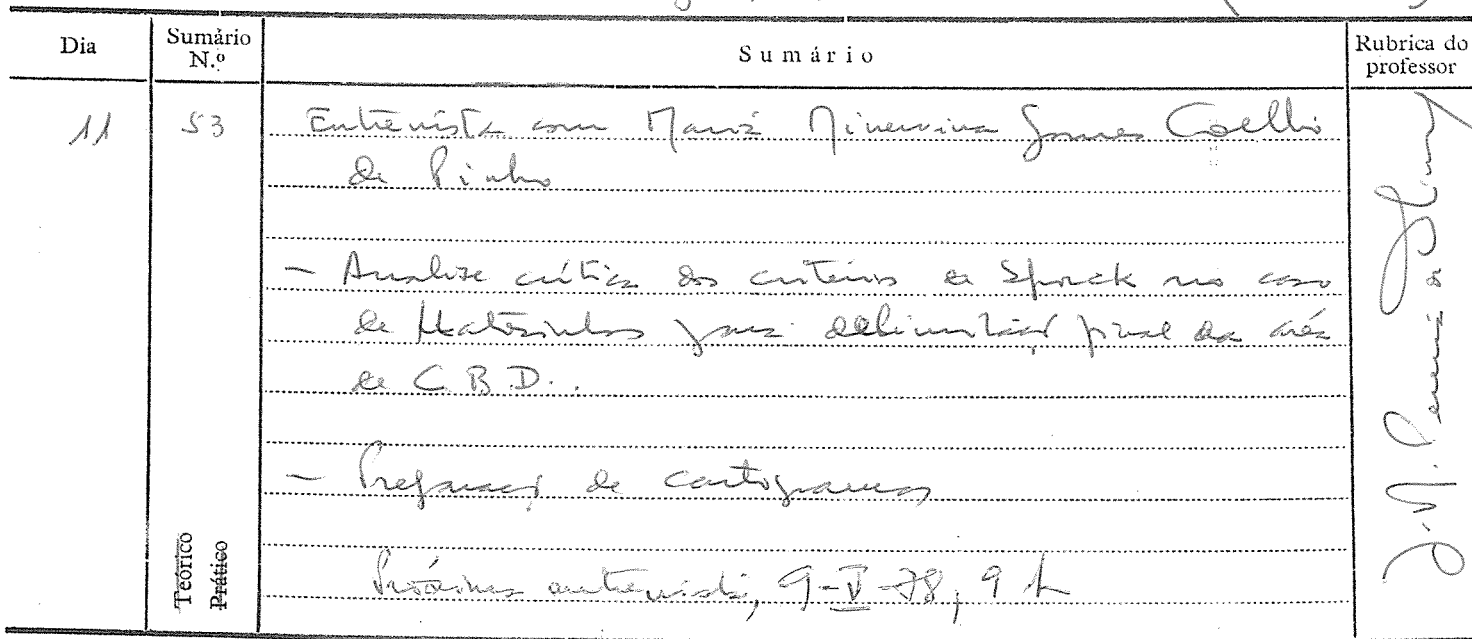 Dia
Sumário N.º
Sumário
Rubrica do professor
11
53
Entrevista com Maria Minervina Gomes Coelho
de Pinho
- Analise crítica dos criterios de Sporck no caso
de Matosinhos para delimitação final da área
de C.B.D..
- Preparação de cartogramas
Próxima entrevista, 9-V-78, 9 h
Teórico
Prático
J. M. Pereira de